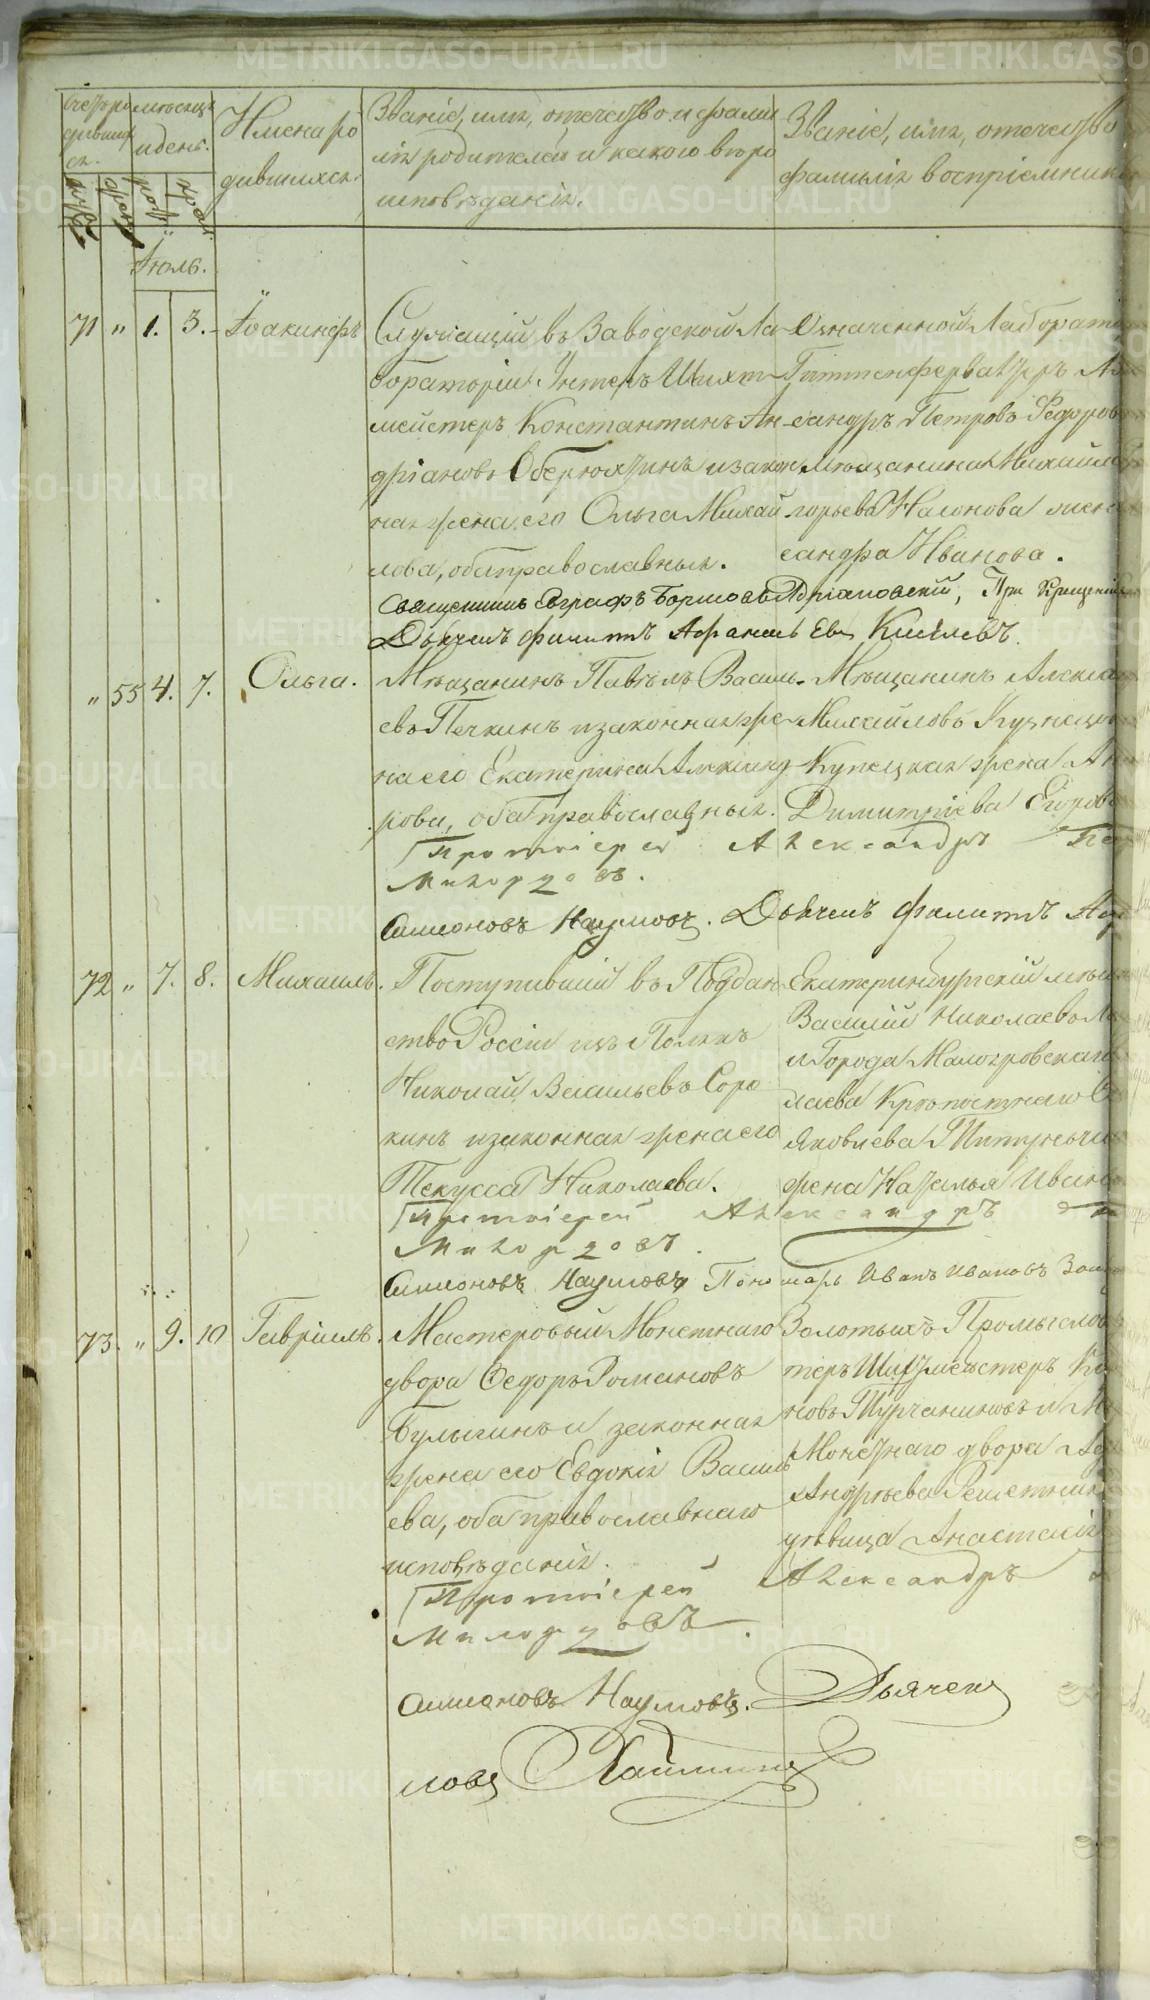 METRIKI.GASO-URAL.RU
Имена ро
дившихся.
Званіе, имя, отечество и фами
лія родителей и какого вѣро
исповѣданія.
Званіе, имя, отечество
фамилія воспріемник
Мѣсяцъ
и день.
Іюль.
71 " 1. 3. Іоакинфъ
Служащій въ Заводской Ла
бораторіи Унтеръ Шихт
мейстеръ Константинъ Ан
дріановъ Оберюхтинъ и закон
ная жена его Ольга Михай
лова, оба православныя.
Означенной Лаборато
Гиттенфервалтеръ Але
сандръ Петровъ Федоров
Мѣщанина Михайла
горьева Насонова жен
сандра Иванова.
Священникъ Евграфъ Адріановскій, При Крещеніи
Дьячекъ Филиппъ Киселевъ.
" 55 4. 7. Ольга.
Мѣщанинъ Павелъ Василь
евъ Печкинъ и законная же
на его Екатерина Александ
рова, оба православныя.
Мѣщанинъ Алекса
Михайловъ Кузнецо
Купецкая жена А
Димитріева Егоров
Протоіерей Александръ
Милордовъ.
Симеоновъ Наумовъ. Дьячекъ Филиппъ
72 " 7. 8. Михаилъ.
Поступившій въ Поддан
ство Россіи изъ
Николай Васильевъ Соро
кинъ и законная жена его
Текусса Николаева.
Екатеринбургскій мѣща
Василій Николаевъ
и Города
лаева Крѣпостнаго
Яковлева
жена Наталья Ивано
Протоіерей Александръ
Милордовъ.
Симеоновъ Наумовъ Пономарь Иванъ Ивановъ
73. " 9. 10 Гавріилъ.
Мастеровый Монетнаго
двора Федоръ Романовъ
Булыгинъ и законная
жена его Евдокія Василь
ева, оба православнаго
исповѣданія.
Золотыхъ Промыслов
теръ Шихтмейстеръ Ко
новъ Турчаниновъ и М
Монетнаго двора
Андреева Решетник
дѣвица Анастасія
Протоіерей Александръ
Милордовъ.
Симеоновъ Наумовъ. Дьячек
ловъ